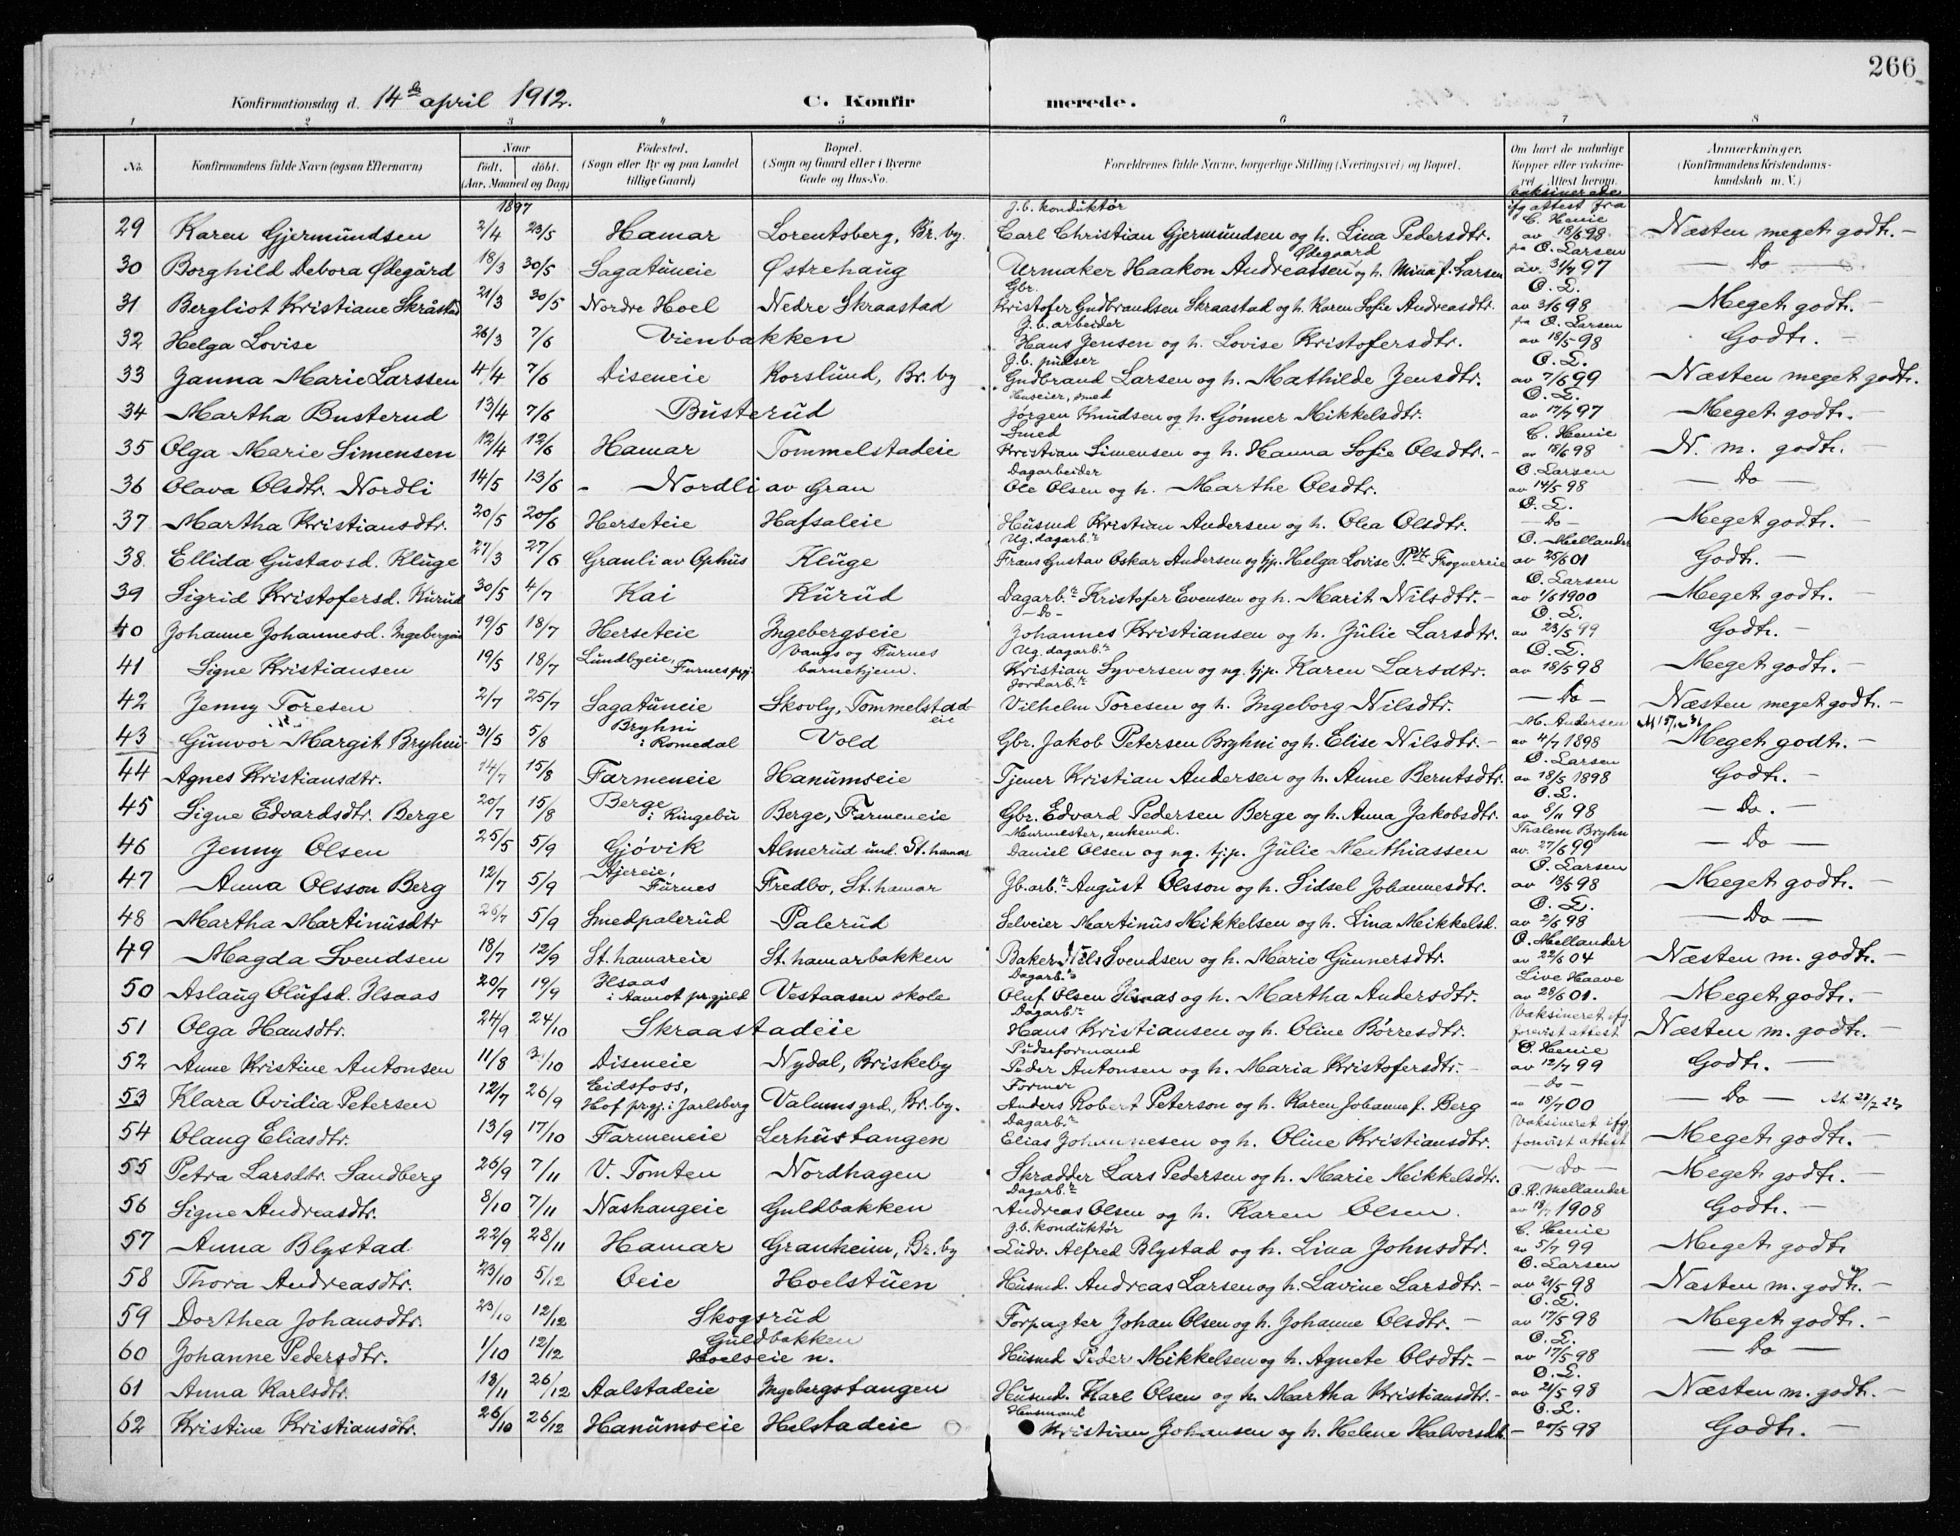 266
Konfirmationsdag d. 14de april 1912. C. Konfirmerede.
1 2 3 4 5 6 7 8
No. Konfirmandens fulde Navn (ogsaa Efternavn) Naar født. døbt. (Aar, Maaned og Dag) Fødested. (Sogn eller By og paa Landet tillige Gaard) Bopæl. (Sogn og Gaard eller i Byerne Gade og Hus-No. Forældrenes fulde Navne, borgerlige Stilling (Næringsvei) og Bopæl. Om havt de naturlige Kopper eller vaksineret. Attest herom. Anmærkninger. (Konfirmandens Kristendomskundskab m. V.)
1897
29 Karen Gjermundsen 2/4 23/5 Hamar Lorentsberg, Br. by. J.b. konduktør Carl Christian Gjermundsen og h. Lina Pedersdtr. vaksinerede ifg attest fra C. Henie av 18/6 98 Næsten meget godt. —
30 Borghild Debora Ødegård 18/3 30/5 Sagatuneie Østrehaug Urmaker Haakon Andreassen Ødegaard og h. Mina f. Larsen fra O. Larsen av. 31/7 97 — Do —
31 Bergliot Kristiane Skråstad 21/3 30/5 Nordre Hoel Nedre Skraastad Gbr. Kristofer Gudbrandsen Skraastad og h. Karen Sofie Andreasdtr. O. L. av 3/6 98 Meget godt. —
32 Helga Lovise 26/3 7/6 Vienbakken J.b. arbeider Hans Jensen og h. Lovise Kristofersdtr. fra O. Larsen av 18/5 98 Godt. —
33 Janna Marie Larssen 4/4 7/6 Diseneie Korslund, Br. by J.b. pudser Gudbrand Larsen og h. Mathilde Jensdtr. O. L. av 7/6 99 Næsten meget godt.
34 Martha Busterud 13/4 7/6 Busterud Huseier, smed Jørgen Knudsen og h. Gønner Mikkelsdtr. O. L. av 17/7 97 Meget godt. —
35 Olga Marie Simensen 12/4 12/6 Hamar Tommelstadeie Smed Kristian Simensen og h. Hanna Sofie Olsdtr. — C. Henie av 18/6 98 N. m. godt. —
36 Olava Olsdtr. Nordli 14/5 13/6 - Nordli av Gran Dagarbeider Ole Olsen og h. Marthe Olsdtr. O. Larsen av 14/5 98 — Do —
37 Martha Kristiansdtr. 20/5 20/6 Herseteie Hafsaleie Husmd Kristian Andersen og h. Olea Olsdtr. O. L. — Do — Meget godt. —
38 Ellida Gustavsd. Kluge 27/3 27/6 Granli av Ophus Kluge Ug. dagarb.r Frans Gustav Oskar Andersen og tjp. Helga Lovise P.dtr Frognereie O. Mellander av 25/6 01 Godt. —
39 Sigrid Kristofersd. Kurud 30/5 4/7 Kai Kurud Dagarb.r Kristofer Evensen og h. Marit Nilsdtr. — O. Larsen av 1/6 1900 Meget godt. —
40 Johanne Johannesd. Ingebergeie 19/5 18/7 Herseteie Ingebergseie — Do — Johannes Kristiansen og h. Julie Larsdtr. O. L. av 23/5 99 Godt. —
41 Signe Kristiansen 19/5 18/7 Lundbyeie, Furnes pgj. Vangs og Furnes barnehjem. Ug. dagarb.r Kristian Syversen og ug. tjp. Karen Larsdtr. O. L. av 18/5 98 Meget godt. —
42 Jenny Toresen 2/7 25/7 Sagatuneie Skovly, Tommelstadeie Jordarb.r Vilhelm Toresen og h. Ingeborg Nilsdtr. — Do — Næsten meget godt. —
43 Gunvor Margit Bryhni 31/5 5/8 Bryhni i Romedal Vold Gbr. Jakob Petersen Bryhni og h. Elise Nilsdtr. — M. Andersen av 4/7 1898 Meget godt. —
44 Agnes Kristiansdtr. 14/7 15/8 Farmeneie Hanumseie Tjener Kristian Andersen og h. Anne Berntsdtr. O. Larsen av 18/5 1898 Godt. —
45 Signe Edvardsdtr. Berge 20/7 15/8 Berge i Ringebu Berge, Farmeneie Gbr. Edvard Pedersen Berge og h. Anna Jakobsdtr. O. L. av 8/11 98 — Do. —
46 Jenny Olsen 25/5 5/9 Gjøvik Almerud und. St. hamar Murmester, enkemd. Daniel Olsen og ug. tjp. Julie Mathiassen Thalem Bryhn av. 27/6 99 — Do —
47 Anna Olsson Berg 12/7 5/9 Furnes Fredbo, St. hamar Jb. arb.r August Olsson og h. Sidsel Johannesdtr. O. Larsen av 18/5 98 Meget godt. —
48 Martha Martinusdtr 26/7 5/9 Smedpalerud Palerud Selveier Martinus Mikkelsen og h. Lina Mikkelsd. O. L. av 2/6 98 — Do —
49 Magda Svendsen 18/7 12/9 St. hamareie St. hamarbakken Baker Nils Svendsen og h. Marie Gunnersdtr. O. Mellander av 22/6 04 Næsten m. godt. —
50 Aslaug Olufsd. Ilsaas 20/7 19/9 Ilsaas i Aamot pr.gjeld Vestaasen skole Dagarb.r Oluf Olsen Ilsaas og h. Martha Andersdtr. Live Haave av 28/6 01. Meget godt. —
51 Olga Hansdtr. 24/9 24/10 Skraastadeie Dagarb.r Hans Kristiansen og h. Oline Børresdtr. Vaksineret ifg forevist attest Næsten m. godt. —
52 Anne Kristine Antonsen 11/8 3/10 Diseneie Nydal, Briskeby Pudseformand Peder Antonsen og h. Maria Kristofersdtr. — C. Henie av 12/7 99 Godt. —
53 Klara Ovidia Petersen 12/7 26/9 Eidsfoss, Hof prgj. i Jarlsberg Valumsgrd., Br. by. Former Anders Robert Peterson og h. Karen Johanne f. Berg — Do — av 18/7 00 — Do —
54 Olaug Eliasdtr. 13/9 17/10 Farmeneie Lerhustangen Dagarb.r Elias Johannesen og h. Oline Kristiansdtr. Vaksineret ifg. forevist attest Meget godt. —
55 Petra Larsdtr. Sandberg 26/9 7/11 V. Tomten Nordhagen Skrædder Lars Pedersen og h. Marie Mikkelsdtr. — Do — Meget godt. —
56 Signe Andreasdtr. 8/10 7/11 Nashaugeie Guldbakken Dagarb.r Andreas Olsen og h. Karen Olsen. O. R. Mellander av 1908 Godt. —
57 Anna Blystad 22/9 28/11 Hamar Granheim, Br. by J.b. konduktør Ludv. Alfred Blystad og h. Lina Johnsdtr. C. Henie av 5/7 99 Meget godt
58 Thora Andreasdtr. 23/10 5/12 Oeie Hoelstuen Husmd. Andreas Larsen og h. Lavine Larsdtr. — O. Larsen av 21/5 98 Næsten m. godt. —
59 Dorthea Johansdtr. 23/10 12/12 Skogsrud Forpagter Johan Olsen og h. Johanne Olsdtr. — O. L. av 17/5 98 Meget godt. —
60 Johanne Pedersdtr. 1/10 12/12 Guldbakken Hoelseie n. Husmd Peder Mikkelsen og h. Agnete Olsdtr. — O. L. av 17/5 98 — Do —
61 Anna Karlsdtr. 18/11 26/12 Aalstadeie Ingebergstangen Husmd. Karl Olsen og h. Martha Kristiansdtr. - O. L. av 21/5 98 Næsten m. godt. —
62 Kristine Kristiansdtr. 26/10 26/12 Hanumseie Helstadeie Husmand Kristian Johansen og h. Helene Halvorsdtr. O. L. — 20/5 98 Godt. —